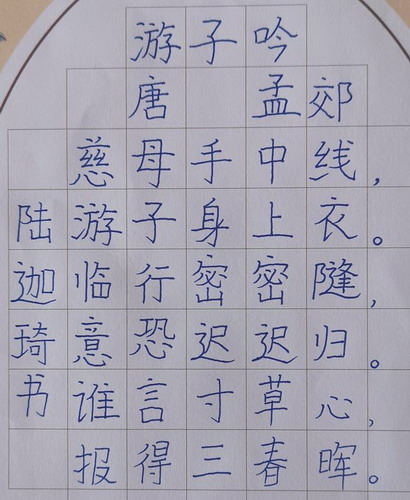 游子吟
唐 孟郊
慈母手中线，
游子身上衣。
临行密密缝，
意恐迟迟归。
谁言寸草心，
报得三春晖。
陆迦琦书